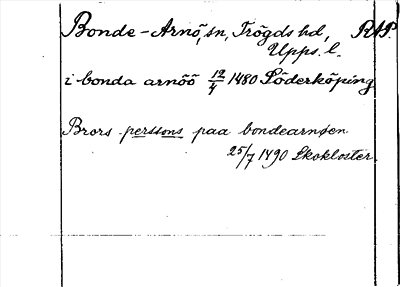 Bonde-Arnö, sn, Trögds hd, RAP.
Upps. l.
i bonda arnöö 12/4 1480 Söderköping
Brors perssons paa bondearnøen
25/7 1490 Skokloster.